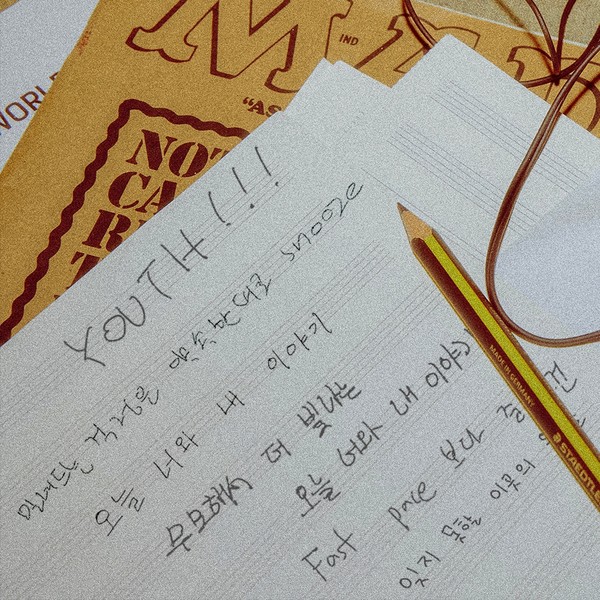 WORL
M
IND
"AS
NOT
CA
YOUTH!!!
밀려드는 걱정은 약속한대로 snooze
오늘 너와 내 이야기
무모해서 더 빛나는
오늘 너와 내 이야기
Fast pace 보다
잊지 못할 이곳의
MADE IN GERMANY
STAEDTLE